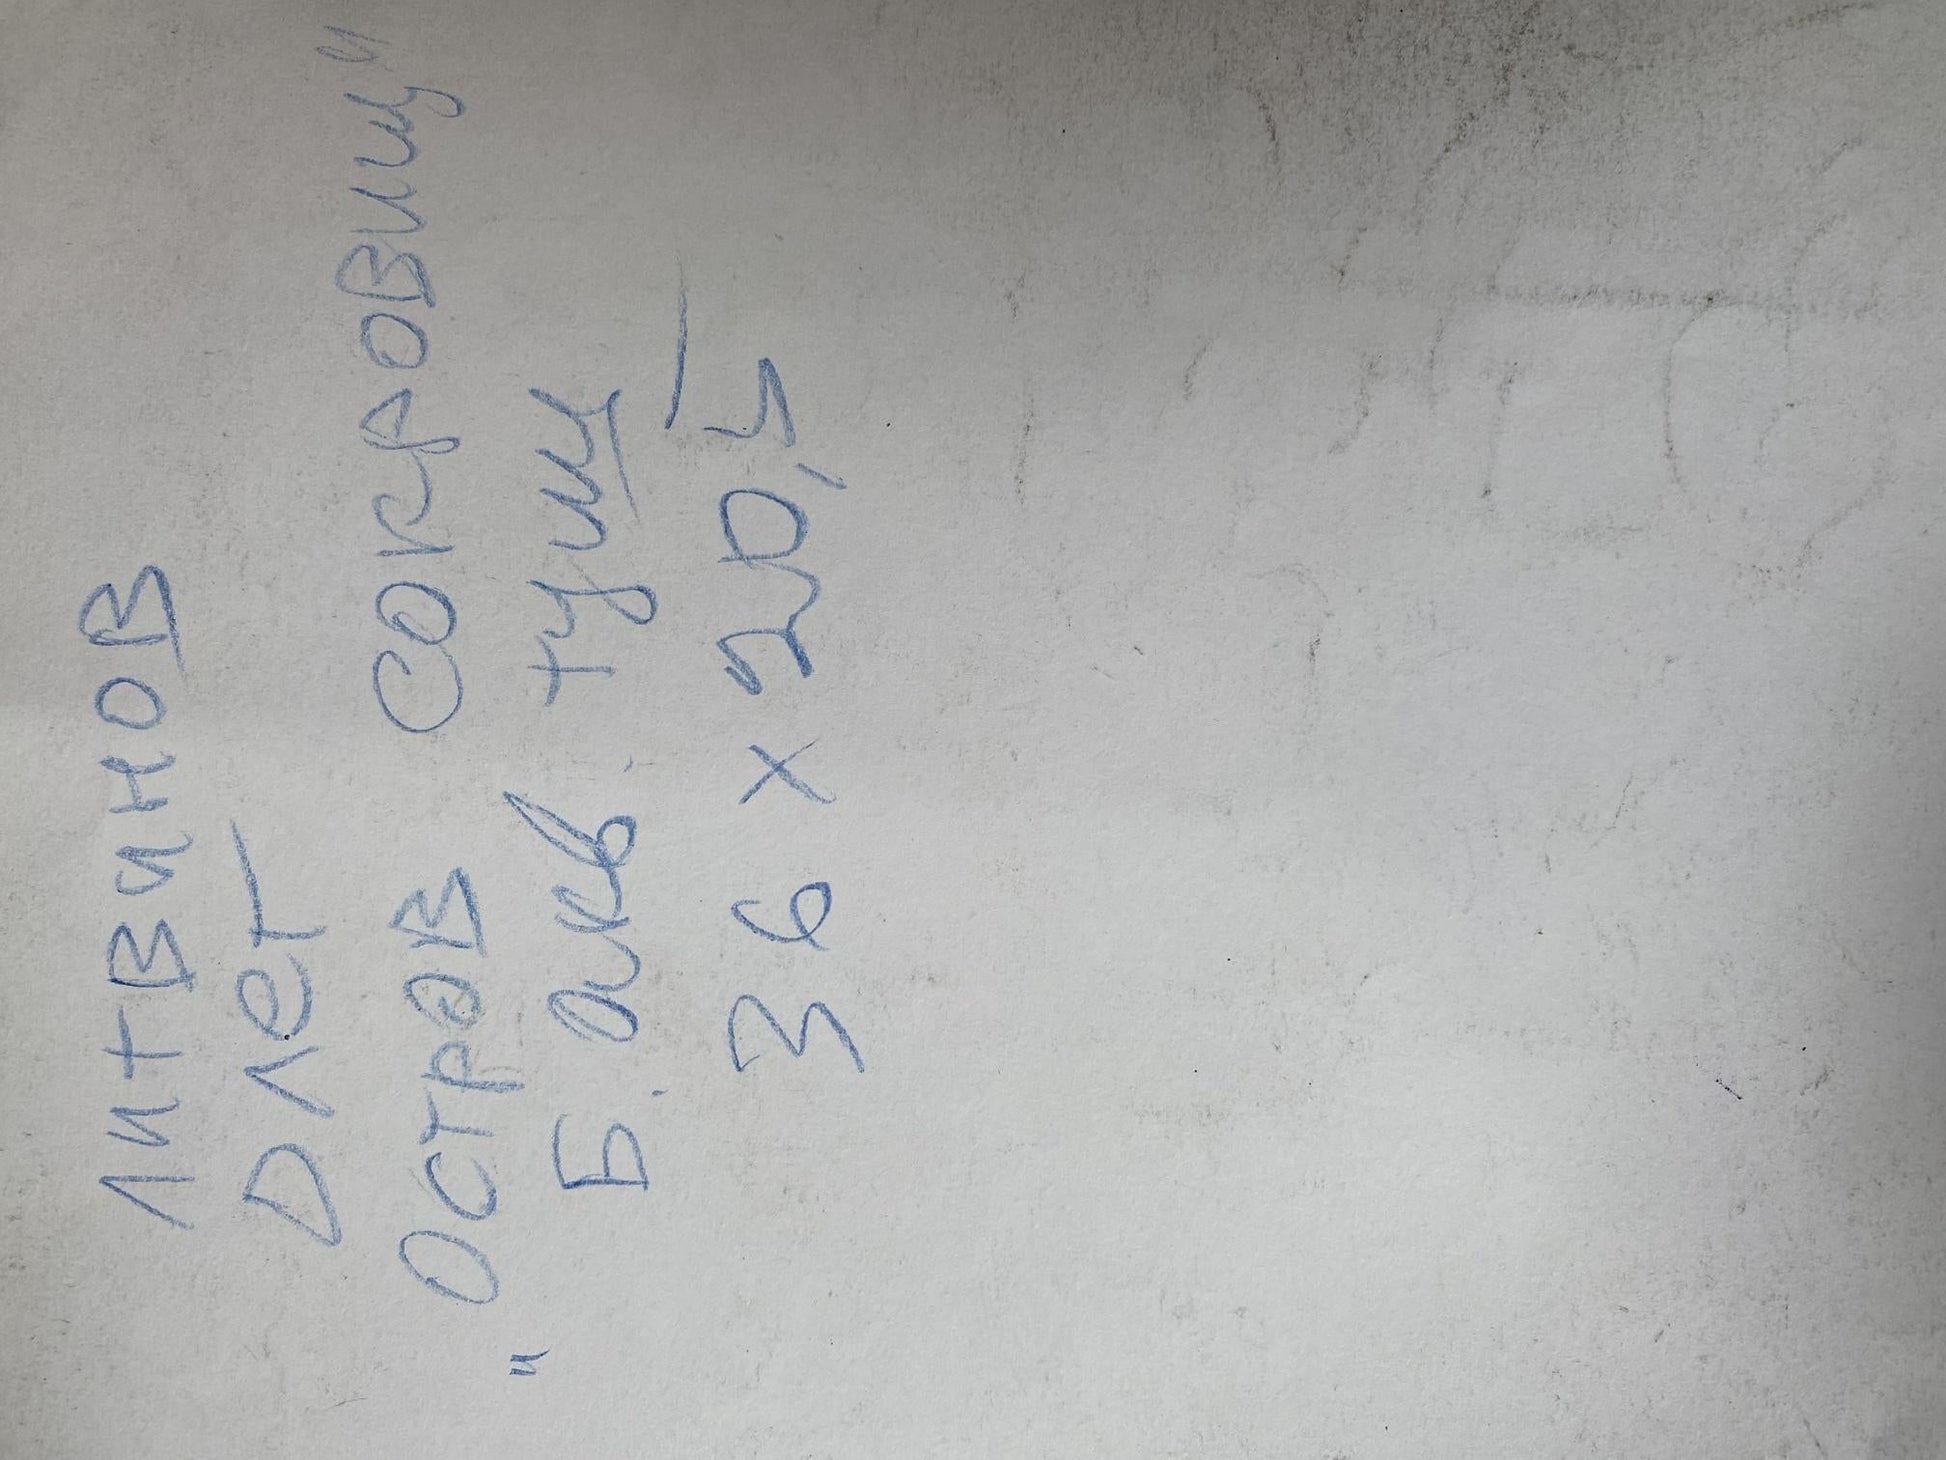 ЛИТВИНОВ
ОЛЕГ
"ОСТРОВ СОКРОВИЩ"
Б. акв. тушь
36 x 50,5